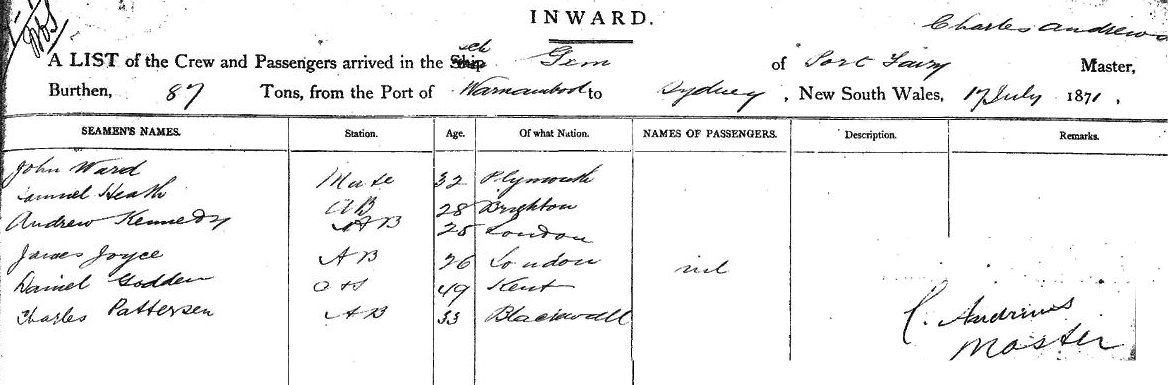 INWARD.
Charles Andrews
A LIST of the Crew and Passengers arrived in the Ship sch Gem of Port Fairy Master,
Burthen, 87 Tons, from the Port of Warnambool to Sydney, New South Wales, 17 July 1871.
SEAMEN'S NAMES. Station. Age. Of what Nation. NAMES OF PASSENGERS. Description. Remarks.
John Ward Mate 32 Plymouth
Samuel Heath AB 28 Brighton
Andrew Kennedy AB 25 London
James Joyce AB 26 London nil
Daniel Godden OS 49 Kent
Charles Pattersen AB 33 Blackwall
C. Andrews
Master